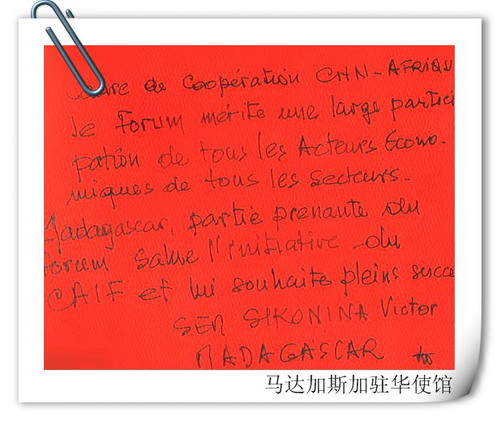 de Coopération CHN-AFRIQU
le Forum mérite une large partici
pation de tous les Acteurs Écono-
miques de tous les secteurs.
Madagascar, partie prenante du
Forum salue l'initiative du
CAIF et lui souhaite pleins succe
SEM SIKONINA Victor
MADAGASCAR
马达加斯加驻华使馆